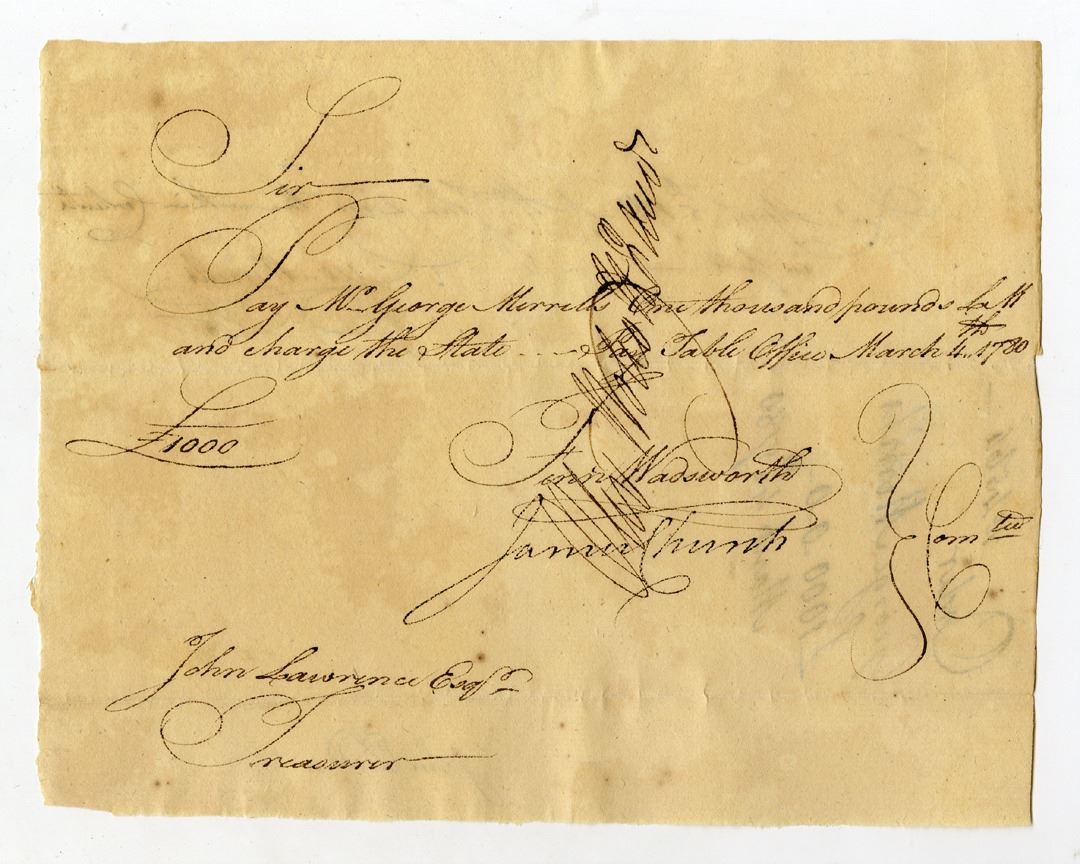 Sir
Pay Mr. George Merrells One thousand pounds L M
and charge the State --- Pay Table Office March 4th 1780
£1000
Fenn Wadsworth
James Church
Comtee
John Lawrence Esqr
Treasurer